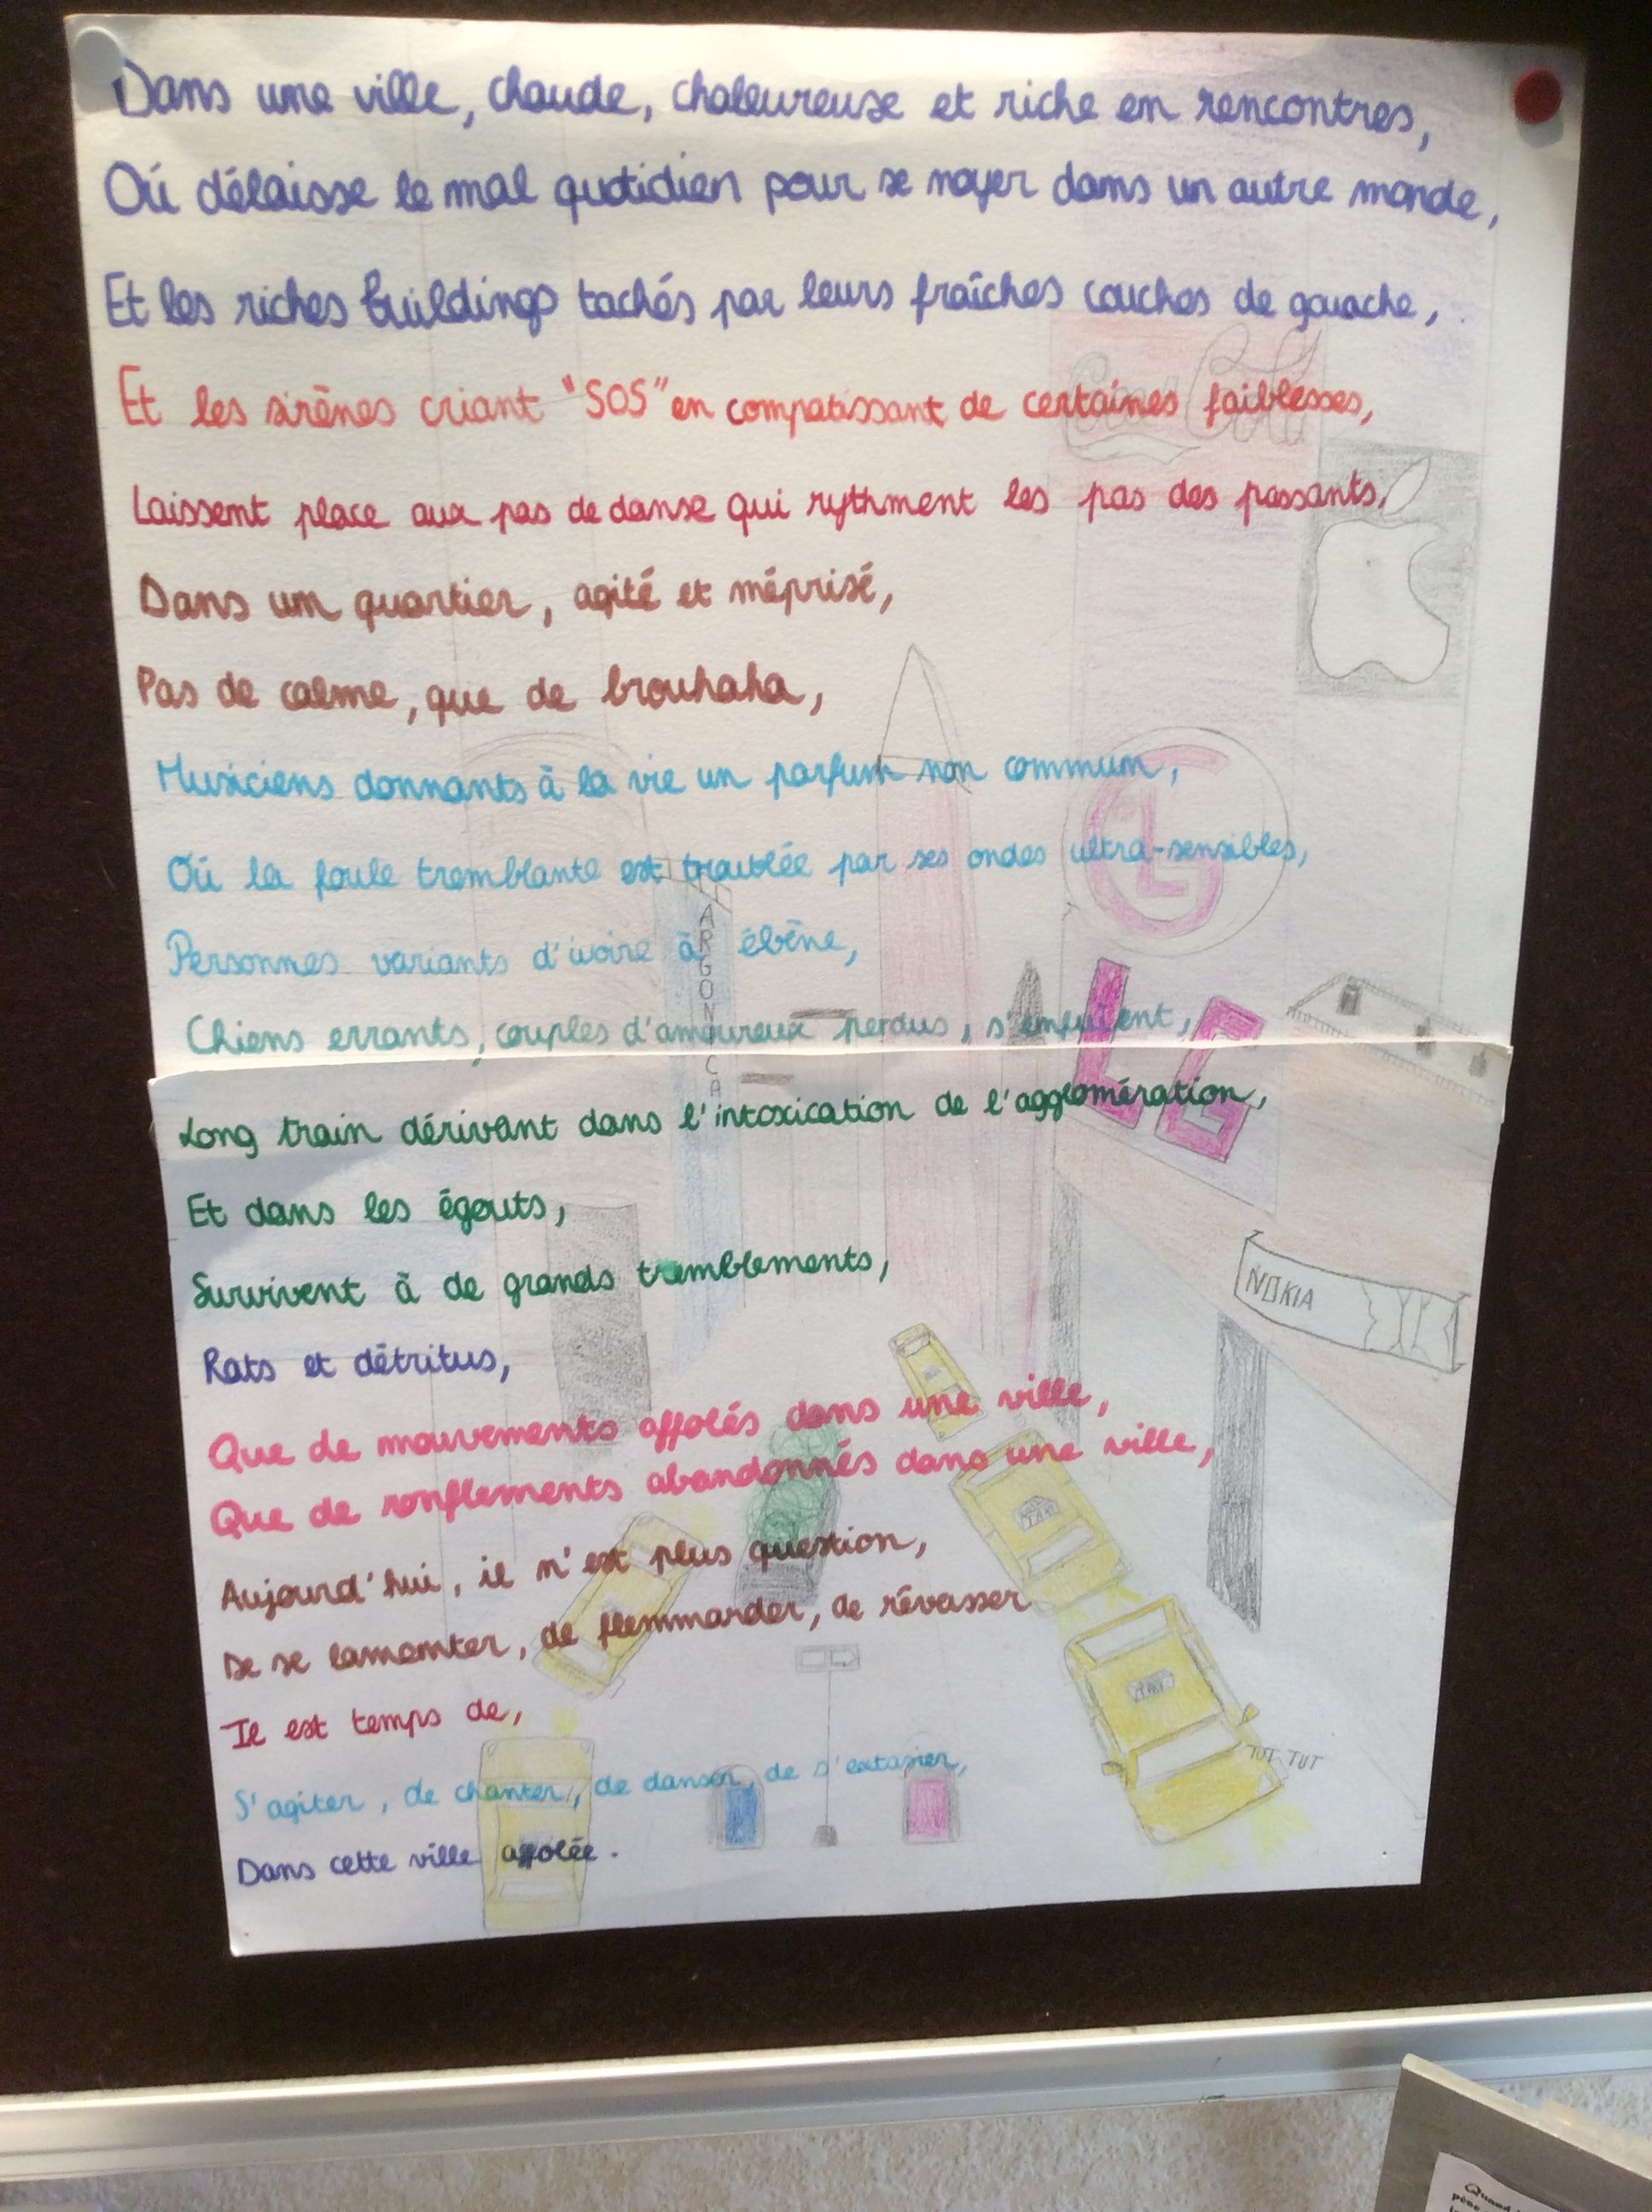 Dans une ville, chaude, chaleureuse et riche en rencontres,
Où délaisse le mal quotidien pour se noyer dans un autre monde,
Et les riches buildings tachés par leurs fraîches couches de gouache,
Et les sirènes criant "SOS" en compatissant de certaines faiblesses,
Laissent place aux pas de danse qui rythment les pas des passants,
Dans un quartier, agité et méprisé,
Pas de calme, que de brouhaha,
Musiciens donnants à la vie un parfum non commun,
Où la foule tremblante est troublée par ses ondes ultra-sensibles,
Personnes variants d'ivoire à ébène,
Chiens errants, couples d'amoureux perdus, s'enfuient,
LG
Long train dérivant dans l'intoxication de l'agglomération,
Et dans les égouts,
Survivent à de grands tremblements,
NOKIA
Rats et détritus,
Que de mouvements affolés dans une ville,
Que de ronflements abandonnés dans une ville,
TAXI
Aujourd'hui, il n'est plus question,
De se lamenter, de flemmarder, de rêvasser
TAXI
Il est temps de,
TUT TUT
S'agiter, de chanter, de danser, de s'extasier,
Dans cette ville affolée.